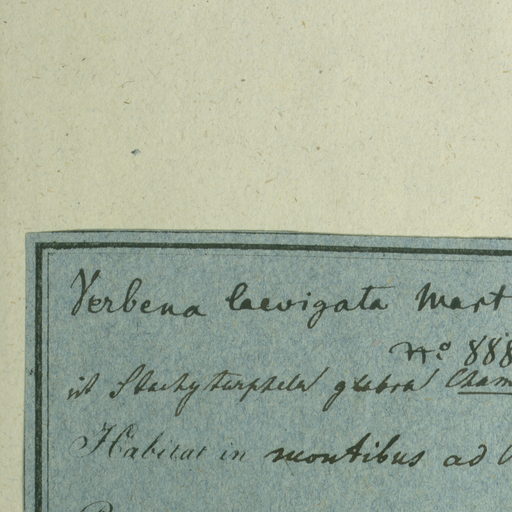 Verbena laevigata Mart
No 888
ist Stachytarpheta glabra Cham
Habitat in montibus ad